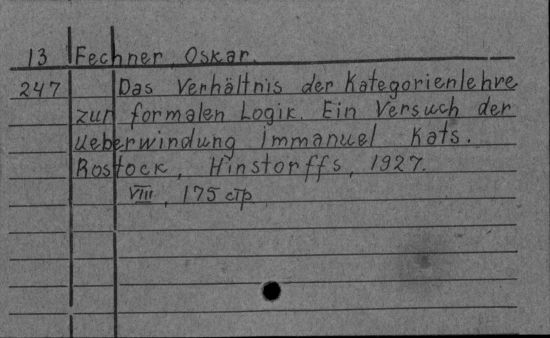 13 Fechner, Oskar.
247 Das Verhältnis der Kategorienlehre
zur formalen Logik. Ein Versuch der
Ueberwindung Immanuel Kats.
Rostock, Hinstorffs, 1927.
VIII, 175 стр.